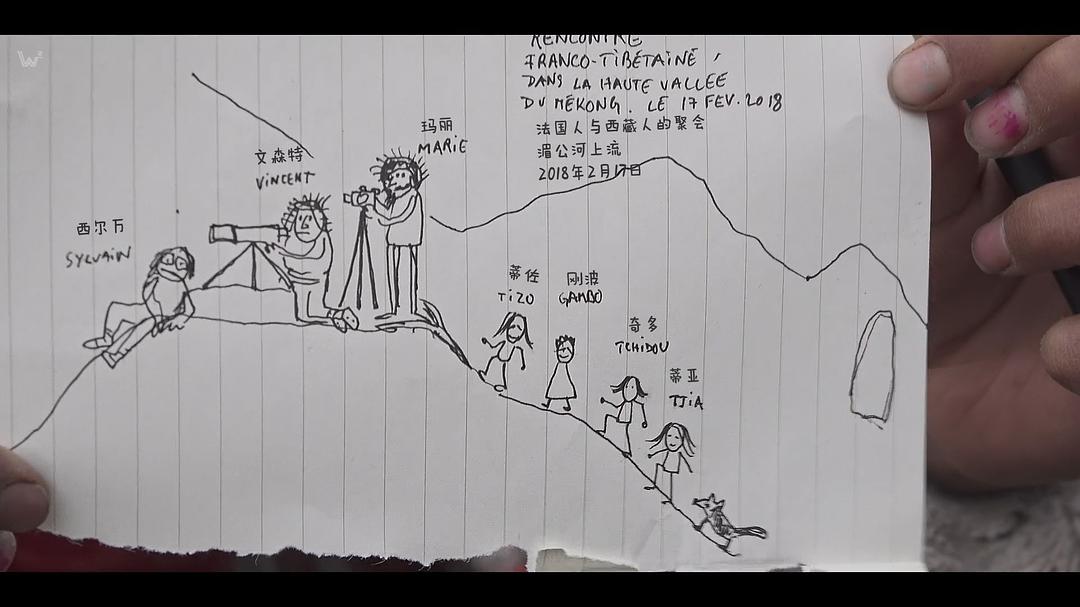 RENCONTRE
FRANCO-TIBÉTAINE
DANS LA HAUTE VALLEE
DU MÉKONG. LE 17 FEV. 2018
法国人与西藏人的聚会
湄公河上流
2018年2月17日
玛丽
MARiE
文森特
ViNCENT
西尔万
SYLVAiN
蒂佐
TiZO
刚波
GAMBO
奇多
TCHiDOU
蒂亚
TJiA
W²